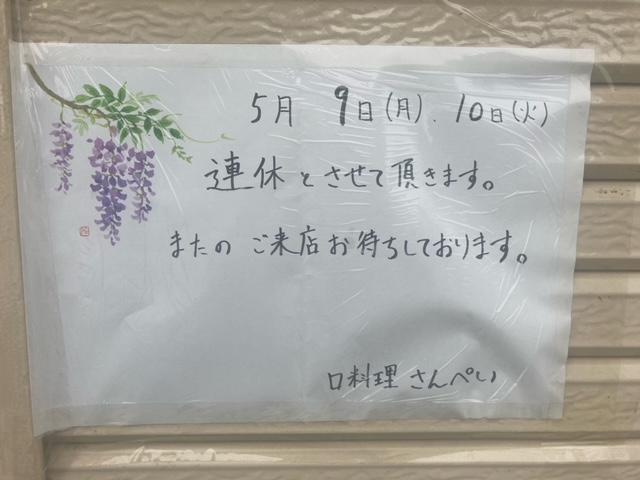 5月 9日(月).10日(火)
連休とさせて頂きます。
またのご来店お待ちしております。
口料理 さんぺい